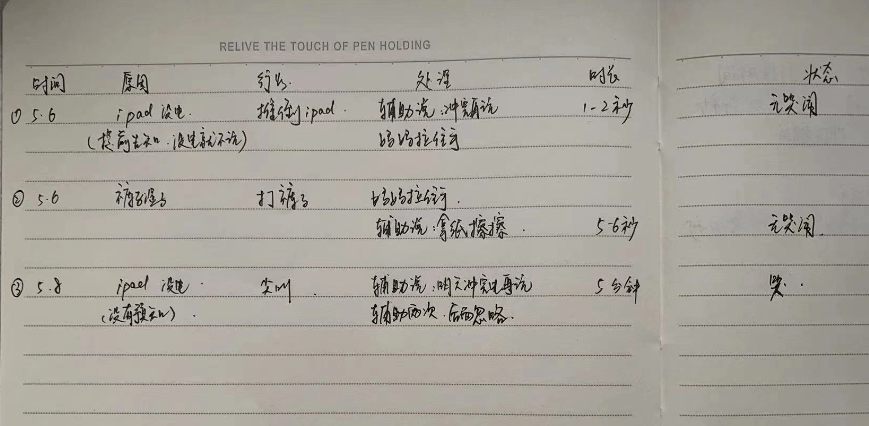 RELIVE THE TOUCH OF PEN HOLDING
时间 原因 行为 处理 时长 状态
① 5.6 ipad 没电. 推倒 ipad. 辅助说:冲完再说 1-2秒 无哭闹
(提前告知.没电就不玩) 妈妈拉住手
② 5.6 裤子湿了 打裤子 妈妈拉住手.
辅助说:拿纸擦擦. 5-6秒 无哭闹.
③ 5.8 ipad 没电. 尖叫. 辅助说:明天冲完电再玩 5分钟 哭.
(没有预知). 辅助两次.后面忽略.